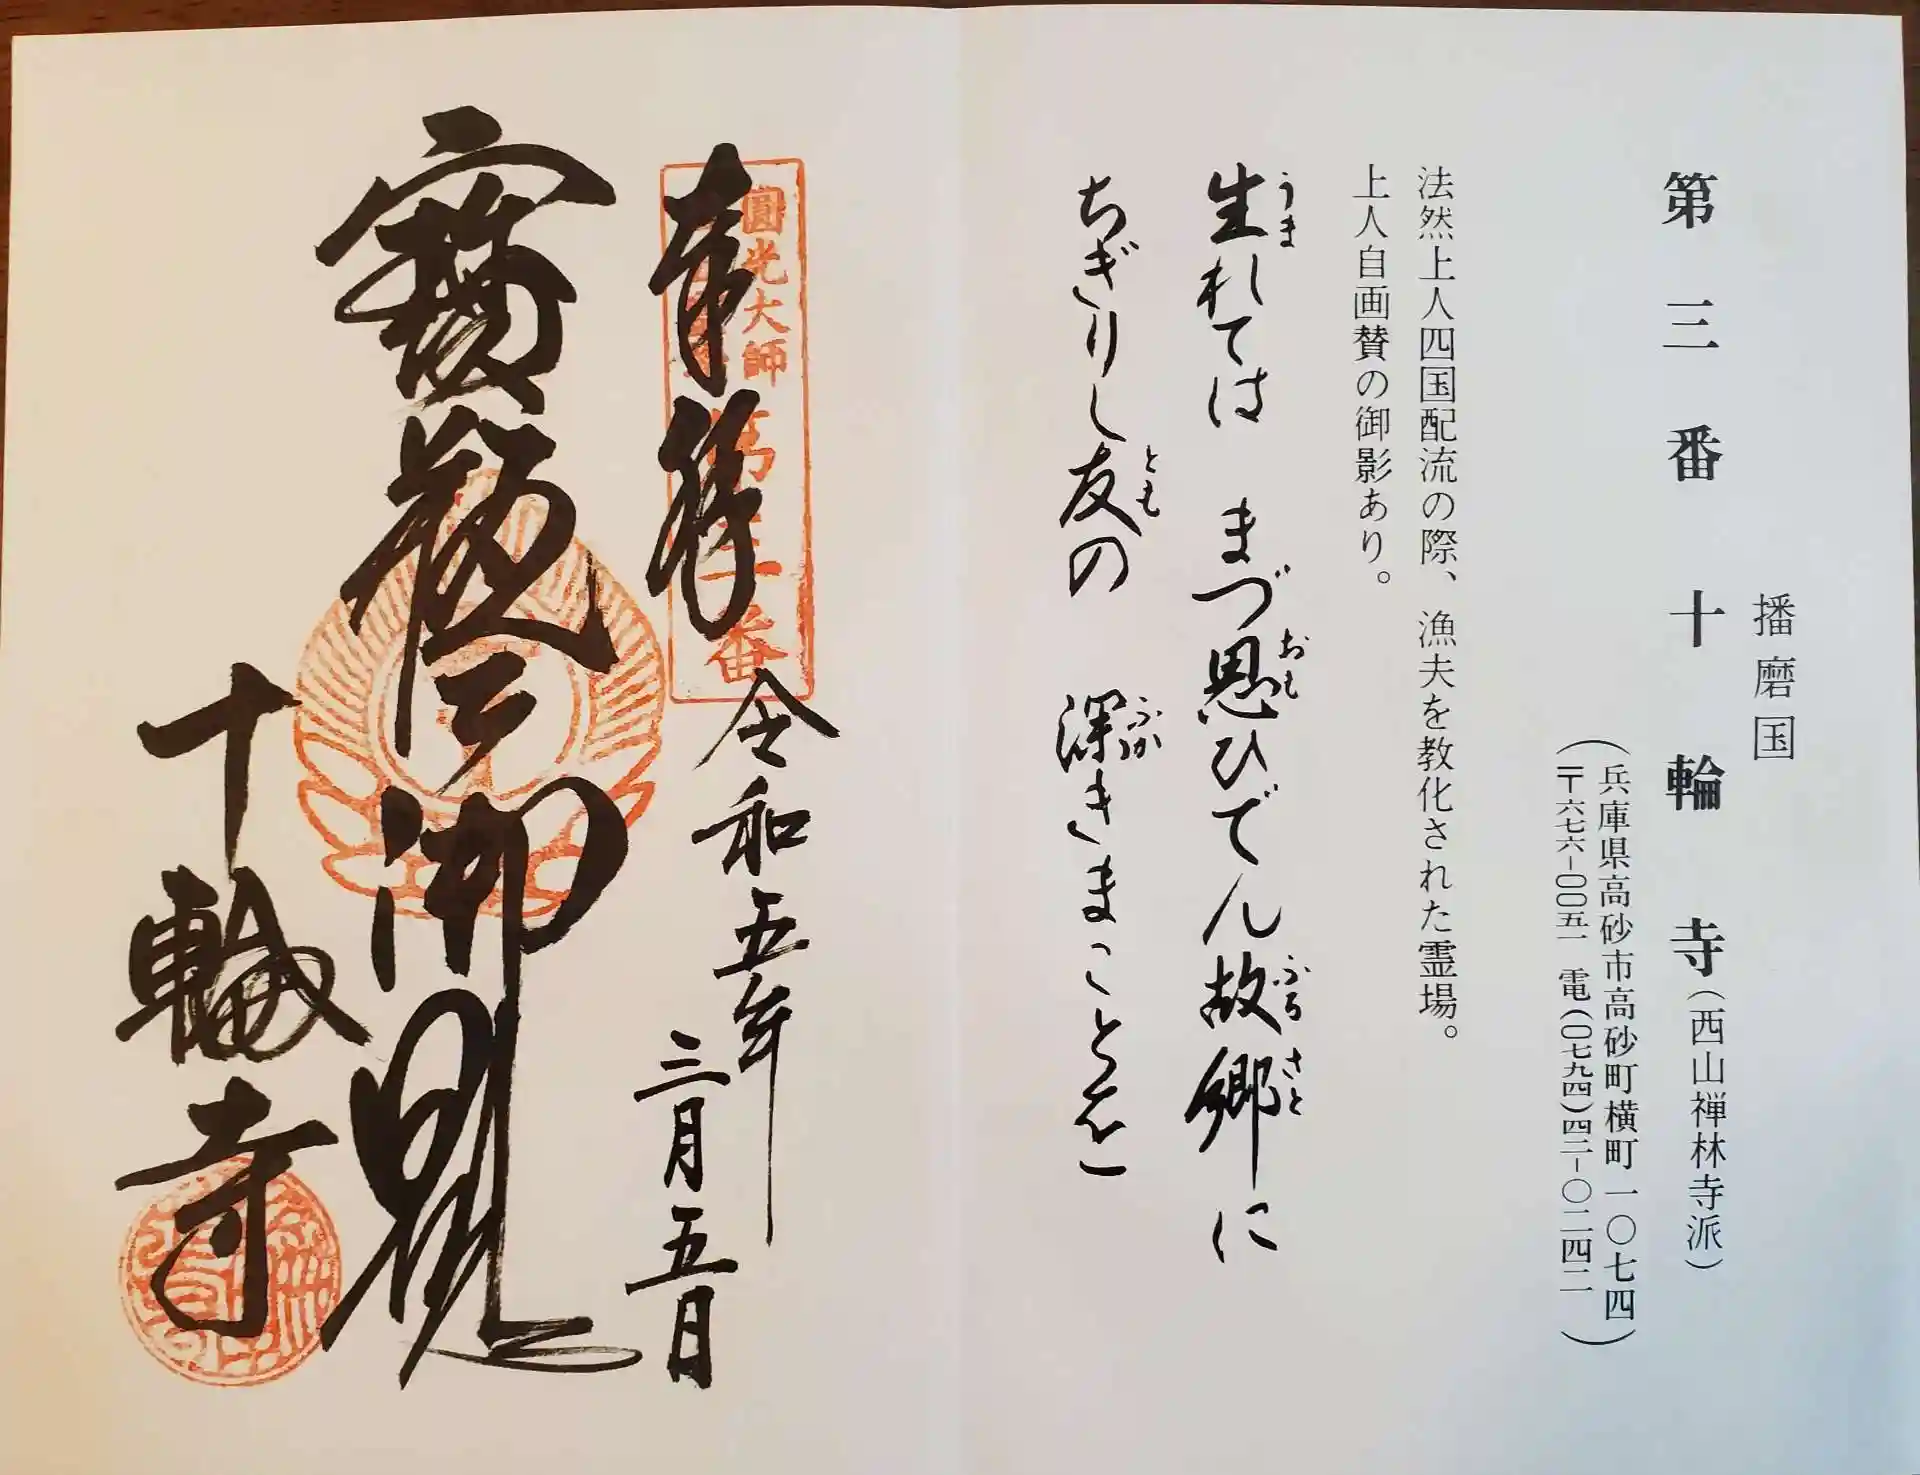 播磨国
第三番十輪寺(西山禅林寺派)
(兵庫県高砂市高砂町横町一〇七四
〒六七六-〇〇五一 電(〇七九四)四二-〇二四二)
法然上人四国配流の際、漁夫を教化された霊場。
上人自画賛の御影あり。
生れては まづ思ひでん故郷に
うま おも ふる さと
ちぎりし友の 深きまことを
とも ふか
圓光大師
第三番
奉拝
令和五年
三月五日
寳瓶御影
十輪寺